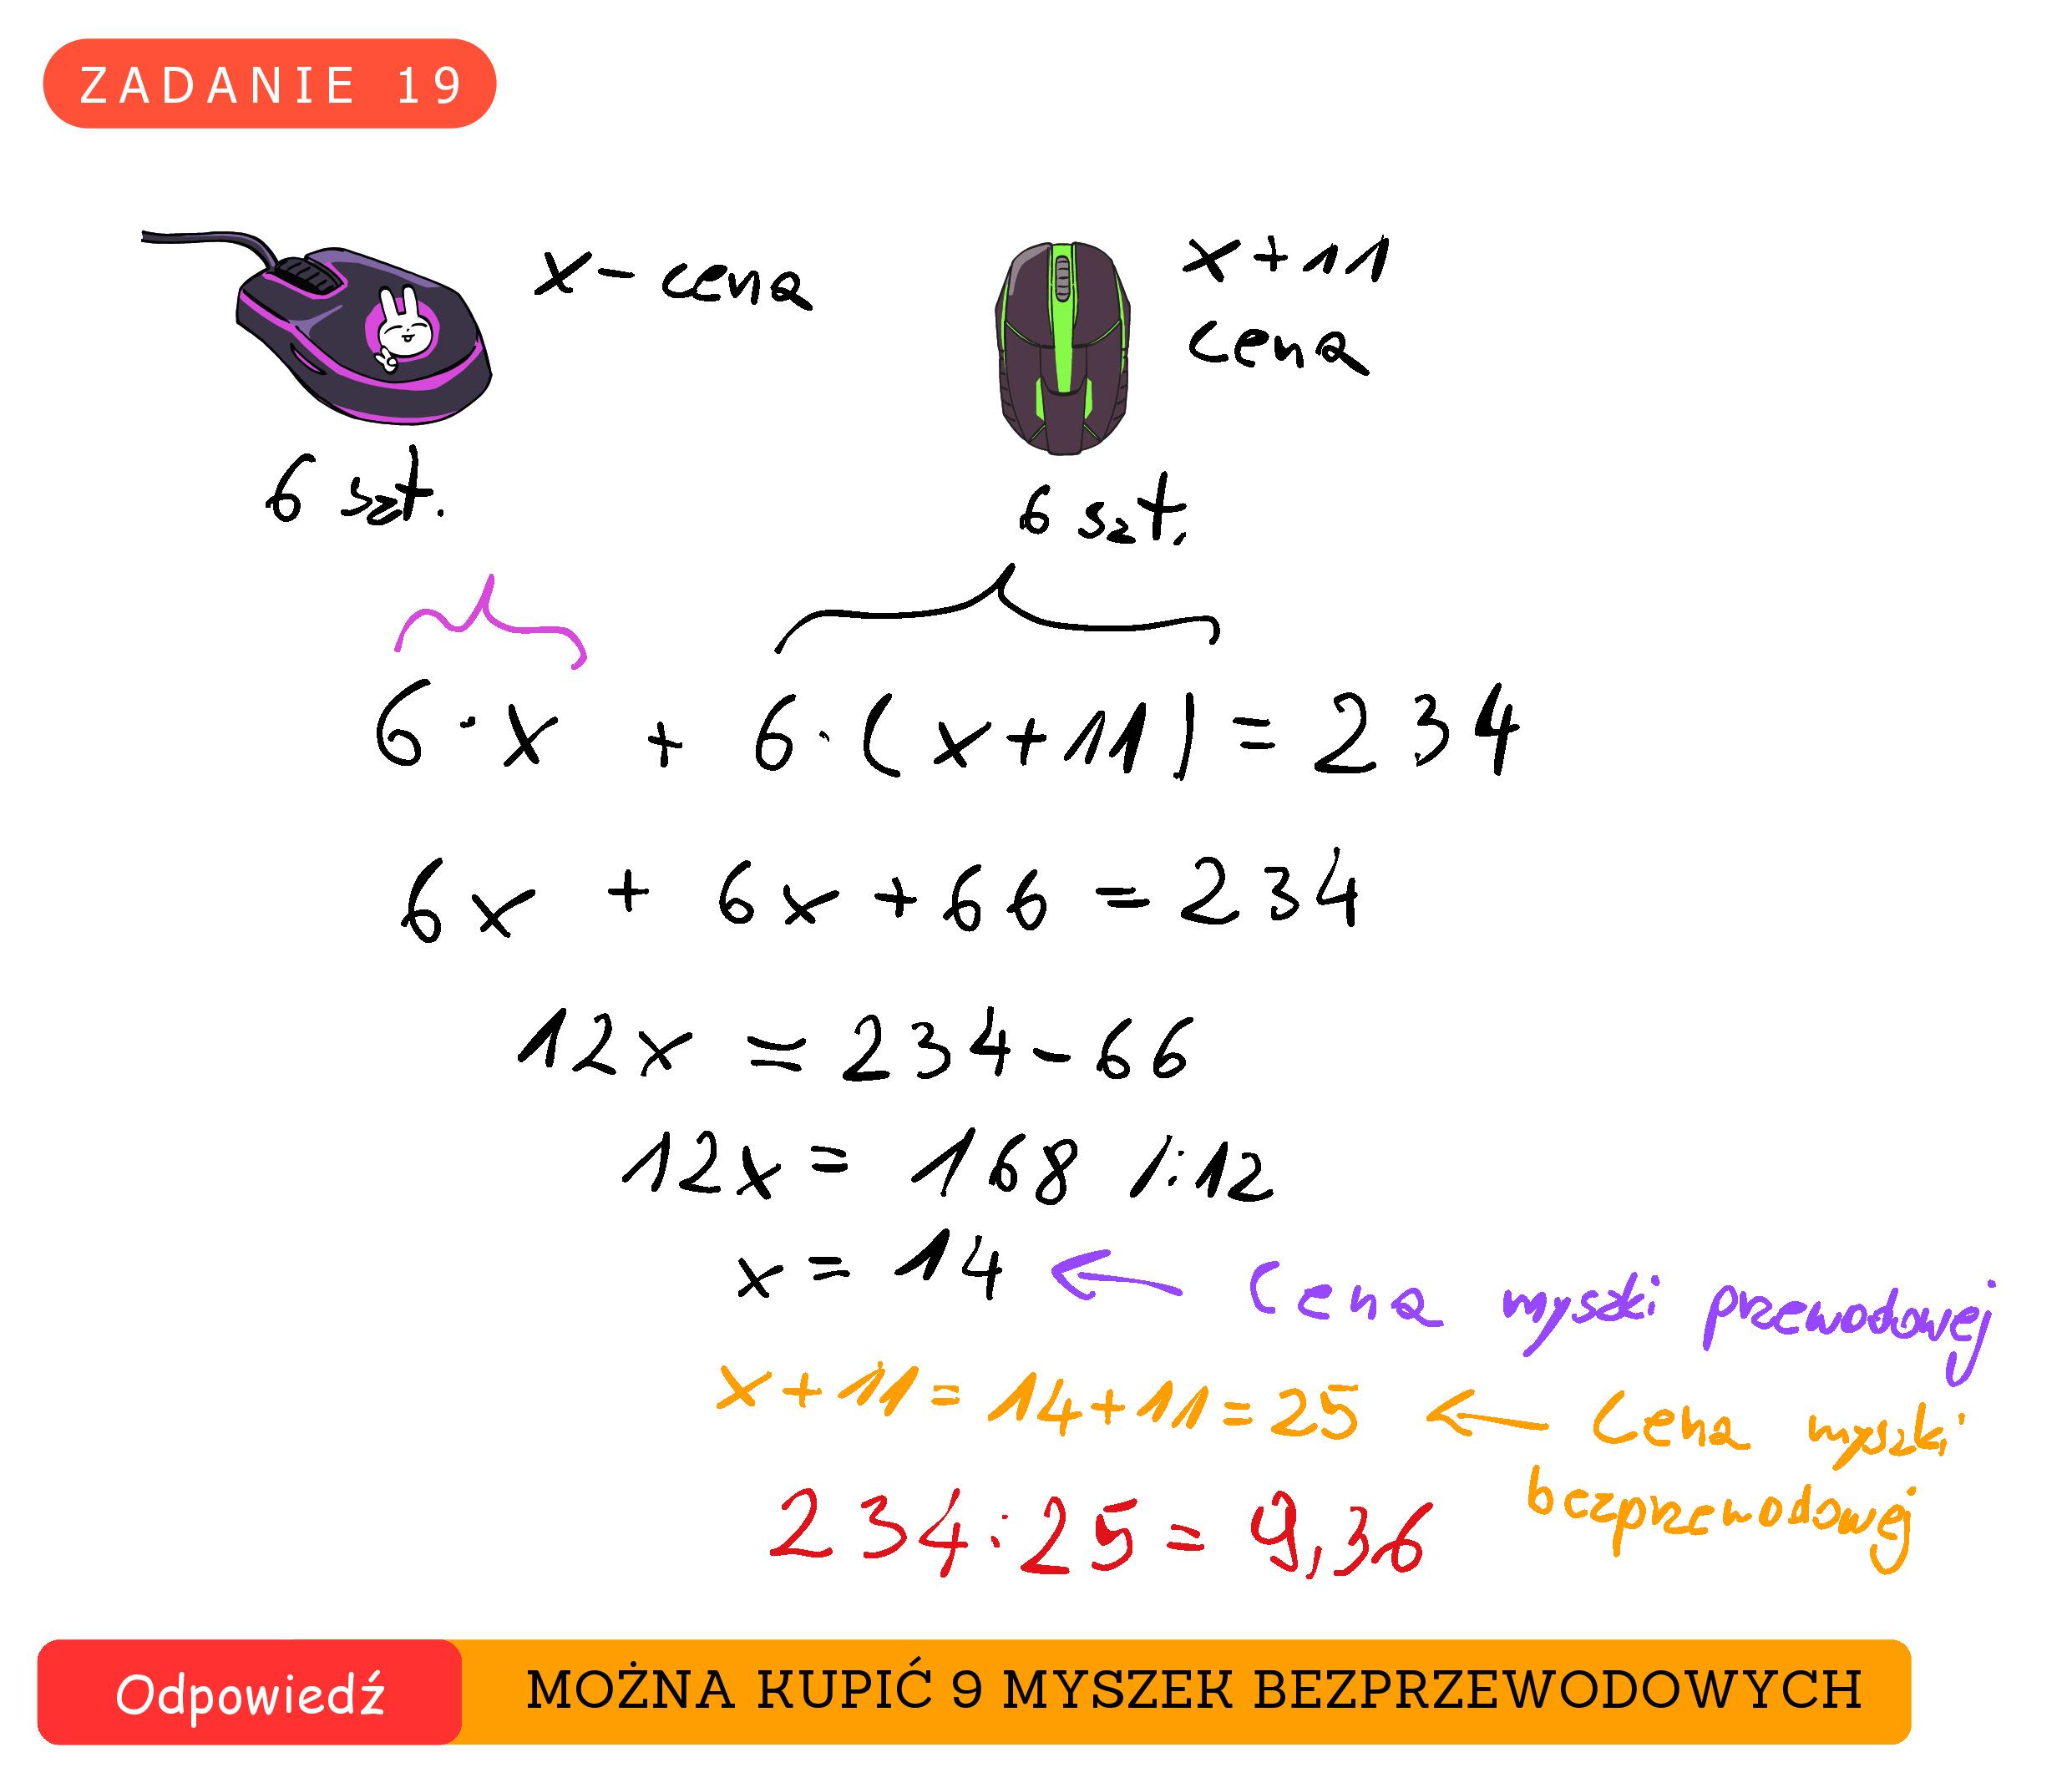 ZADANIE 19
x - cena
x + 11
cena
6 szt.
6 szt.
6 · x + 6 · (x + 11) = 234
6x + 6x + 66 = 234
12x = 234 - 66
12x = 168 /:12
x = 14 ← Cena myszki przewodowej
x + 11 = 14 + 11 = 25 ← Cena myszki
bezprzewodowej
234 : 25 = 9,36
Odpowiedź MOŻNA KUPIĆ 9 MYSZEK BEZPRZEWODOWYCH